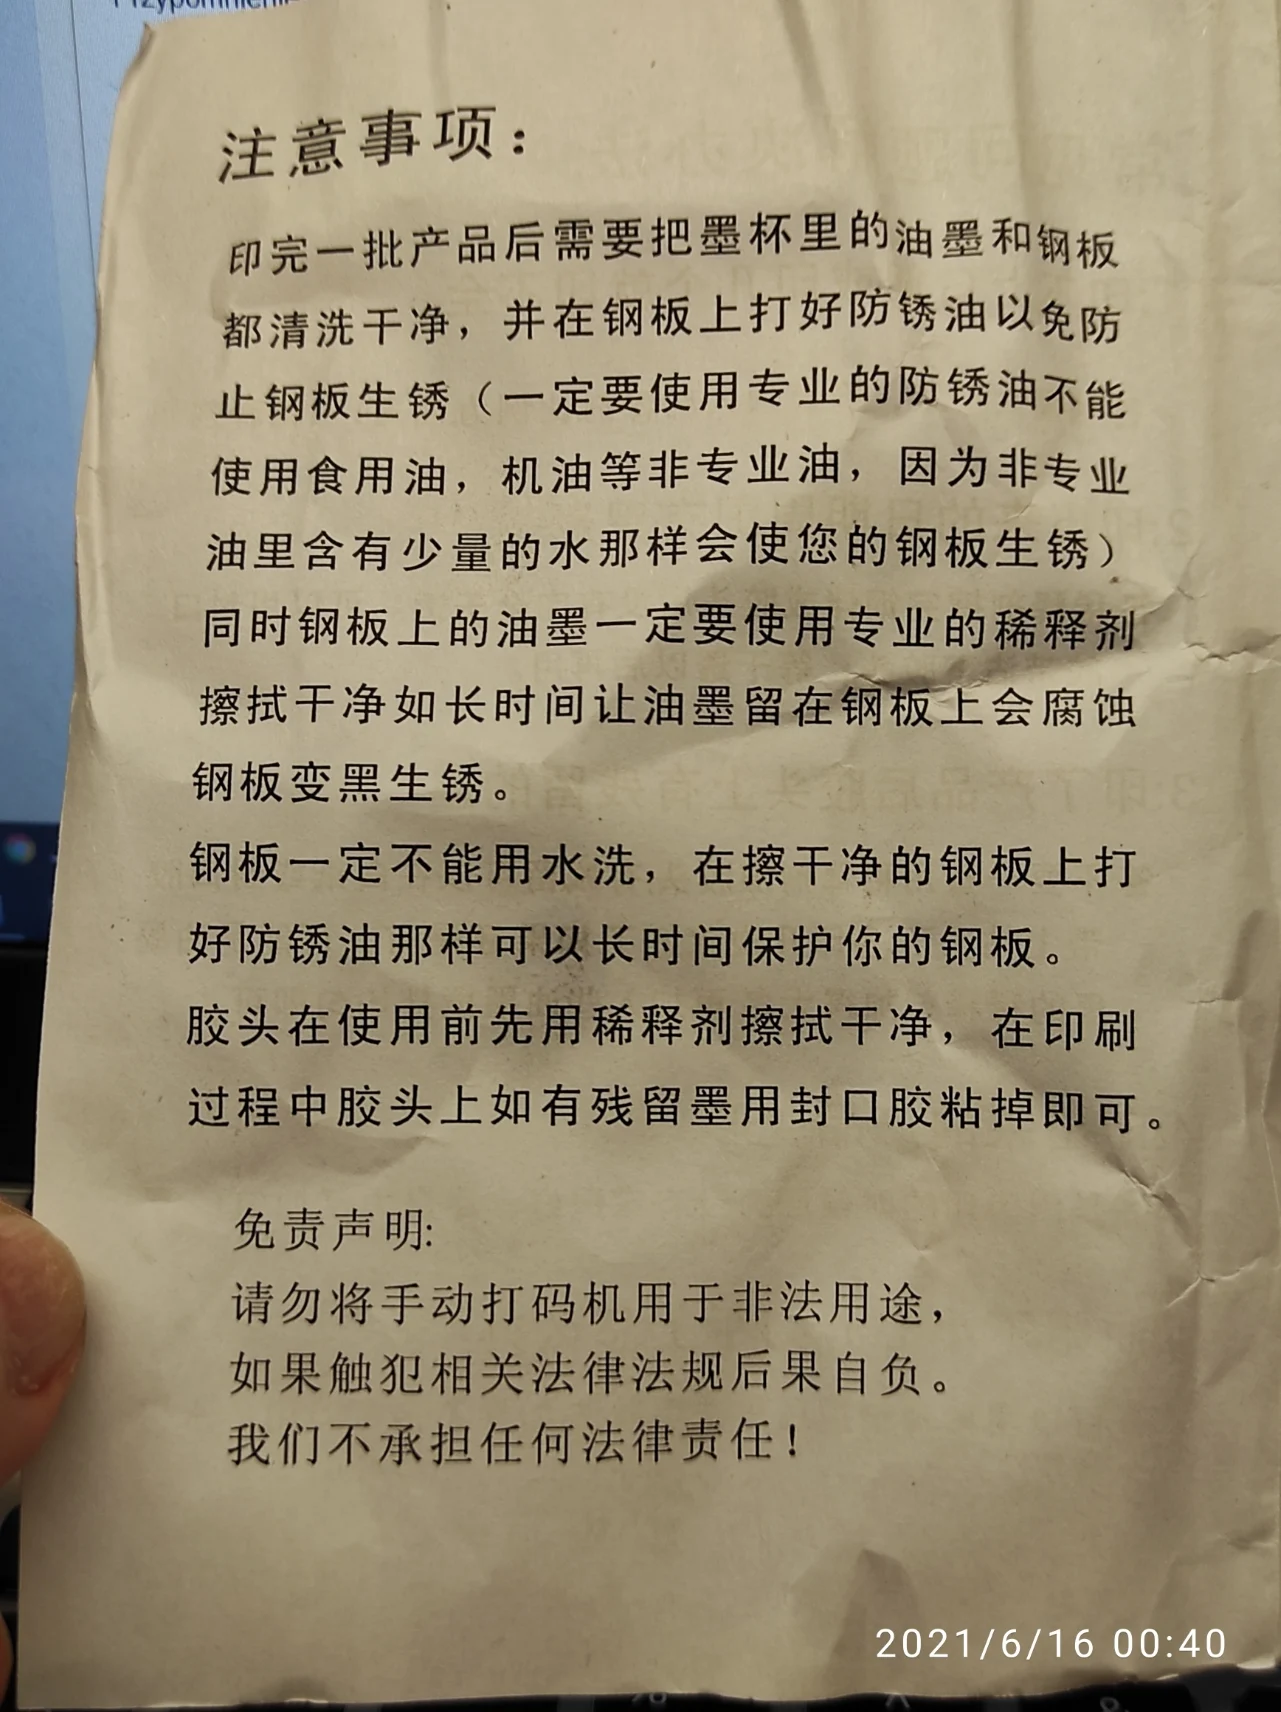 注意事项：
印完一批产品后需要把墨杯里的油墨和钢板
都清洗干净，并在钢板上打好防锈油以免防
止钢板生锈（一定要使用专业的防锈油不能
使用食用油，机油等非专业油，因为非专业
油里含有少量的水那样会使您的钢板生锈）
同时钢板上的油墨一定要使用专业的稀释剂
擦拭干净如长时间让油墨留在钢板上会腐蚀
钢板变黑生锈。
钢板一定不能用水洗，在擦干净的钢板上打
好防锈油那样可以长时间保护你的钢板。
胶头在使用前先用稀释剂擦拭干净，在印刷
过程中胶头上如有残留墨用封口胶粘掉即可。
免责声明:
请勿将手动打码机用于非法用途，
如果触犯相关法律法规后果自负。
我们不承担任何法律责任！
2021/6/16 00:40